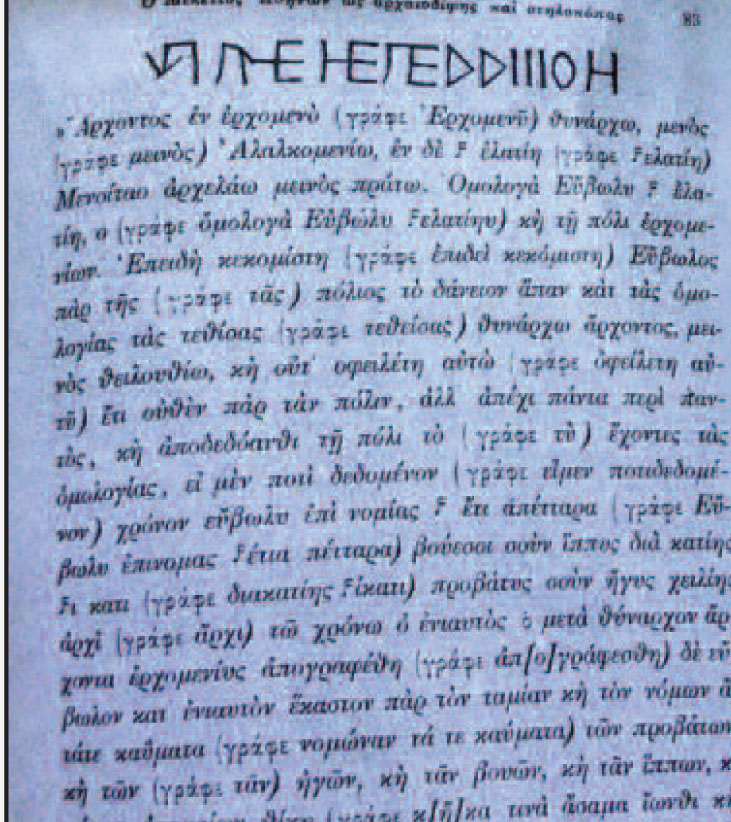 Ὁ Μελέτιος Ἀθηνῶν ὡς ἀρχαιοδίφης καὶ στηλοκόπας 83
„Ἄρχοντος ἐν ἐρχομενῦ (γράφε Ἐρχομενῦ) θυνάρχω, μενὸς
(γράφε μεινὸς) Ἀλαλκομενίω, ἐν δὲ Ϝ ἐλατίη (γράφε Ϝελατίη)
Μενοίταο ἀρχελάω μεινὸς πράτω. Ὁμολογὰ Εὔβωλυ Ϝ ἐλα-
τίη, ο (γράφε ὁμολογὰ Εὐβώλυ Ϝελατίηυ) κὴ τῇ πόλι ἐρχομε-
νίων. Ἐπειδὴ κεκομίστη (γράφε ἐπιδεὶ κεκόμιστη) Εὔβωλος
πὰρ τῆς (γράφε τᾶς) πόλιος τὸ δάνειον ἅπαν κὰτ τὰς ὁμο-
λογίας τὰς τεθίσας (γράφε τεθείσας) θυνάρχω ἄρχοντος, μει-
νὸς θειλουθίω, κὴ οὔτ᾽ οφειλέτη αὐτὼ (γράφε ὀφείλετη αὐ-
τῦ) ἔτι οὐθὲν πὰρ τὰν πόλιν, ἀλλ ἀπέχι πάντα περὶ παν-
τὸς, κὴ ἀποδεδόανθι τῇ πόλι τὸ (γράφε τὺ) ἔχοντες τὰς
ὁμολογίας, εἰ μὲν ποτὶ δεδομένον (γράφε εἶμεν ποτιδεδομέ-
νον) χρόνον εὔβωλυ ἐπὶ νομίας Ϝ ἔτι ἀπέτταρα (γράφε Εὔ-
βωλυ ἐπινομας Ϝέτια πέτταρα) βούεσσι σοὺν ἵππυς διὰ κατίης
Ϝι κατι (γράφε διακατίης Ϝίκατι) προβάτυς σοὺν ἤγυς χειλίης
ἀρχὶ (γράφε ἄρχι) τῶ χρόνω ὁ ἐνιαυτὸς ὁ μετὰ θύναρχον ἄρ
χοντα ἐρχομενίυς ἀπογραφέθη (γράφε ἀπ[ο]γράφεσθη) δὲ εὔ
βωλον κατ᾽ ἐνιαυτὸν ἕκαστον πὰρ τὸν ταμίαν κὴ τὸν νόμων ἂ
τάτε καῦματα (γράφε νομώναν τά τε καύματα) τῶν προβάτων
κὴ τῶν (γράφε τᾶν) ἠγῶν, κὴ τᾶν βουῶν, κὴ τᾶν ἵππων, κ
(γράφε κ[ῆ]κα τινὰ ἄσαμα ἴωνθι κὴ